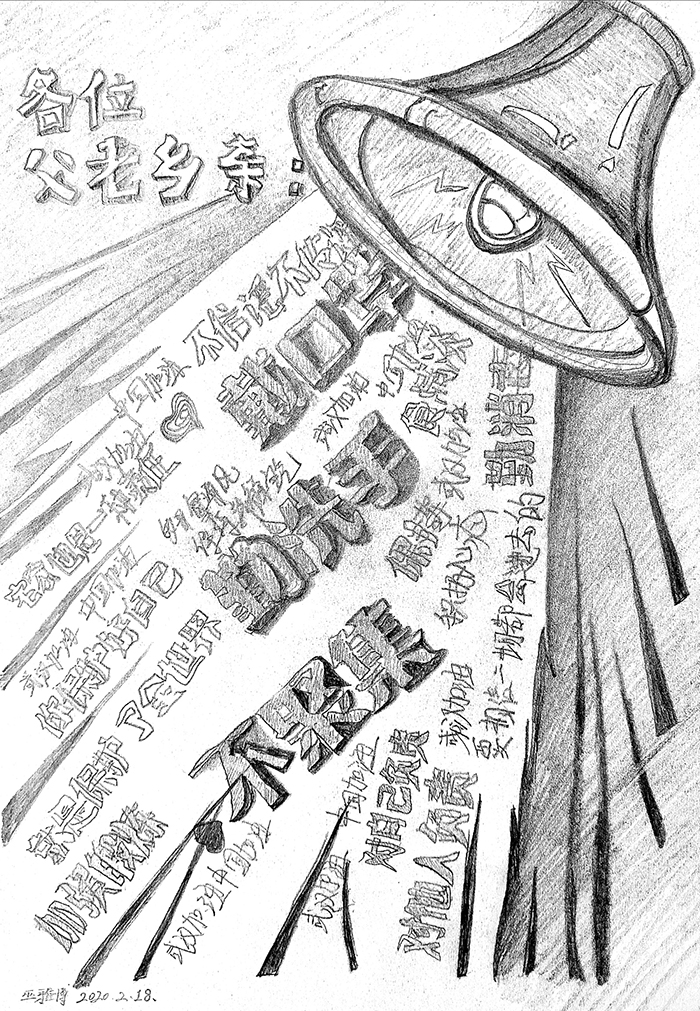 各位
父老乡亲:
不信谣不传谣
戴口罩
中国加油
武汉加油
中国加油
保持
勤消毒
宅家也是一种责任
勤洗手
武汉加油
保持
积极心态
武汉加油
中国加油
你保护好自己
了全世界
不聚集
武汉加油
要相信一切都会过去的
就是保护
加强锻炼
武汉加油中国加油
武汉加油
中国加油
对自己负责
对他人负责
2020.2.18.